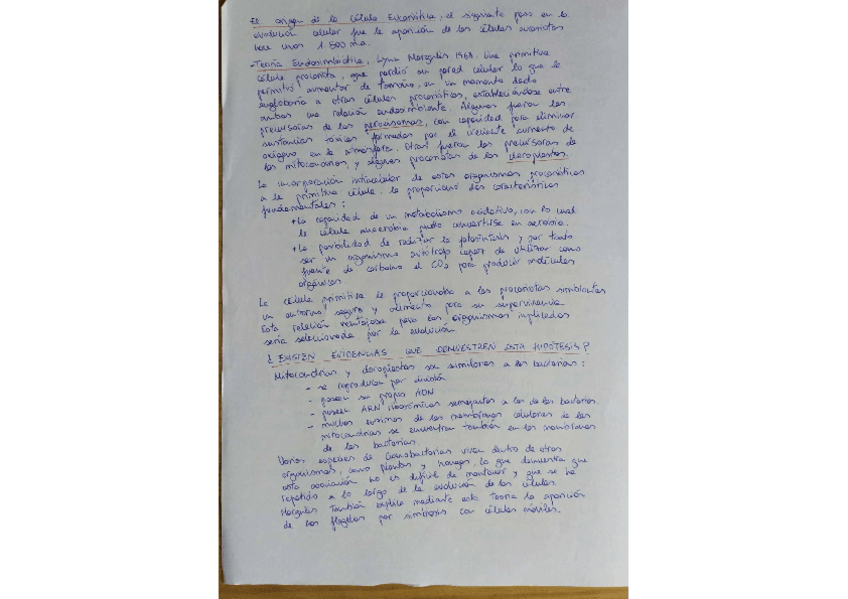 El origen de la célula Eucariótica, el siguiente paso en la
evolución celular fue la aparición de las células eucariotas
hace unos 1.500 m.a.
-Teoría Endosimbiótica, Lynn Margulis 1968. Una primitiva
célula procariota, que perdió su pared celular lo que le
permitió aumentar de tamaño, en un momento dado
englobaría a otras células procarióticas, estableciéndose entre
ambas una relación endosimbionte. Algunas fueron las
precursoras de los peroxisomas, con capacidad para eliminar
sustancias tóxicas formadas por el creciente aumento de
oxígeno en la atmósfera. Otras fueron las precursoras de
las mitocondrias, y algunas procariotas de los cloroplastos.
La incorporación intracelular de estos organismos procarióticos
a la primitiva célula, le proporcionó dos características
fundamentales:
+ La capacidad de un metabolismo oxidativo, con lo cual
la célula anaerobia pudo convertirse en aerobia.
+ La posibilidad de realizar la fotosíntesis y por tanto
ser un organismo autótrofo capaz de utilizar como
fuente de carbono el CO2 para producir moléculas
orgánicas.
La célula primitiva le proporcionaba a las procariotas simbiontes
un entorno seguro y alimento para su supervivencia.
Esta relación ventajosa para los organismos implicados
sería seleccionada por la evolución.
¿ EXISTEN EVIDENCIAS QUE DEMUESTREN ESTA HIPÓTESIS ?
Mitocondrias y cloroplastos son similares a las bacterias:
- se reproducen por división
- poseen su propio ADN
- poseen ARN ribosómicos semejantes a los de las bacterias.
- muchas enzimas de las membranas celulares de las
mitocondrias se encuentran también en las membranas
de las bacterias.
Varias especies de Cianobacterias viven dentro de otros
organismos, como plantas y hongos, lo que demuestra que
esta asociación no es difícil de mantener y que se ha
repetido a lo largo de la evolución de las células.
Margulis también explica mediante esta teoría la aparición
de los flagelos por simbiosis con células móviles.